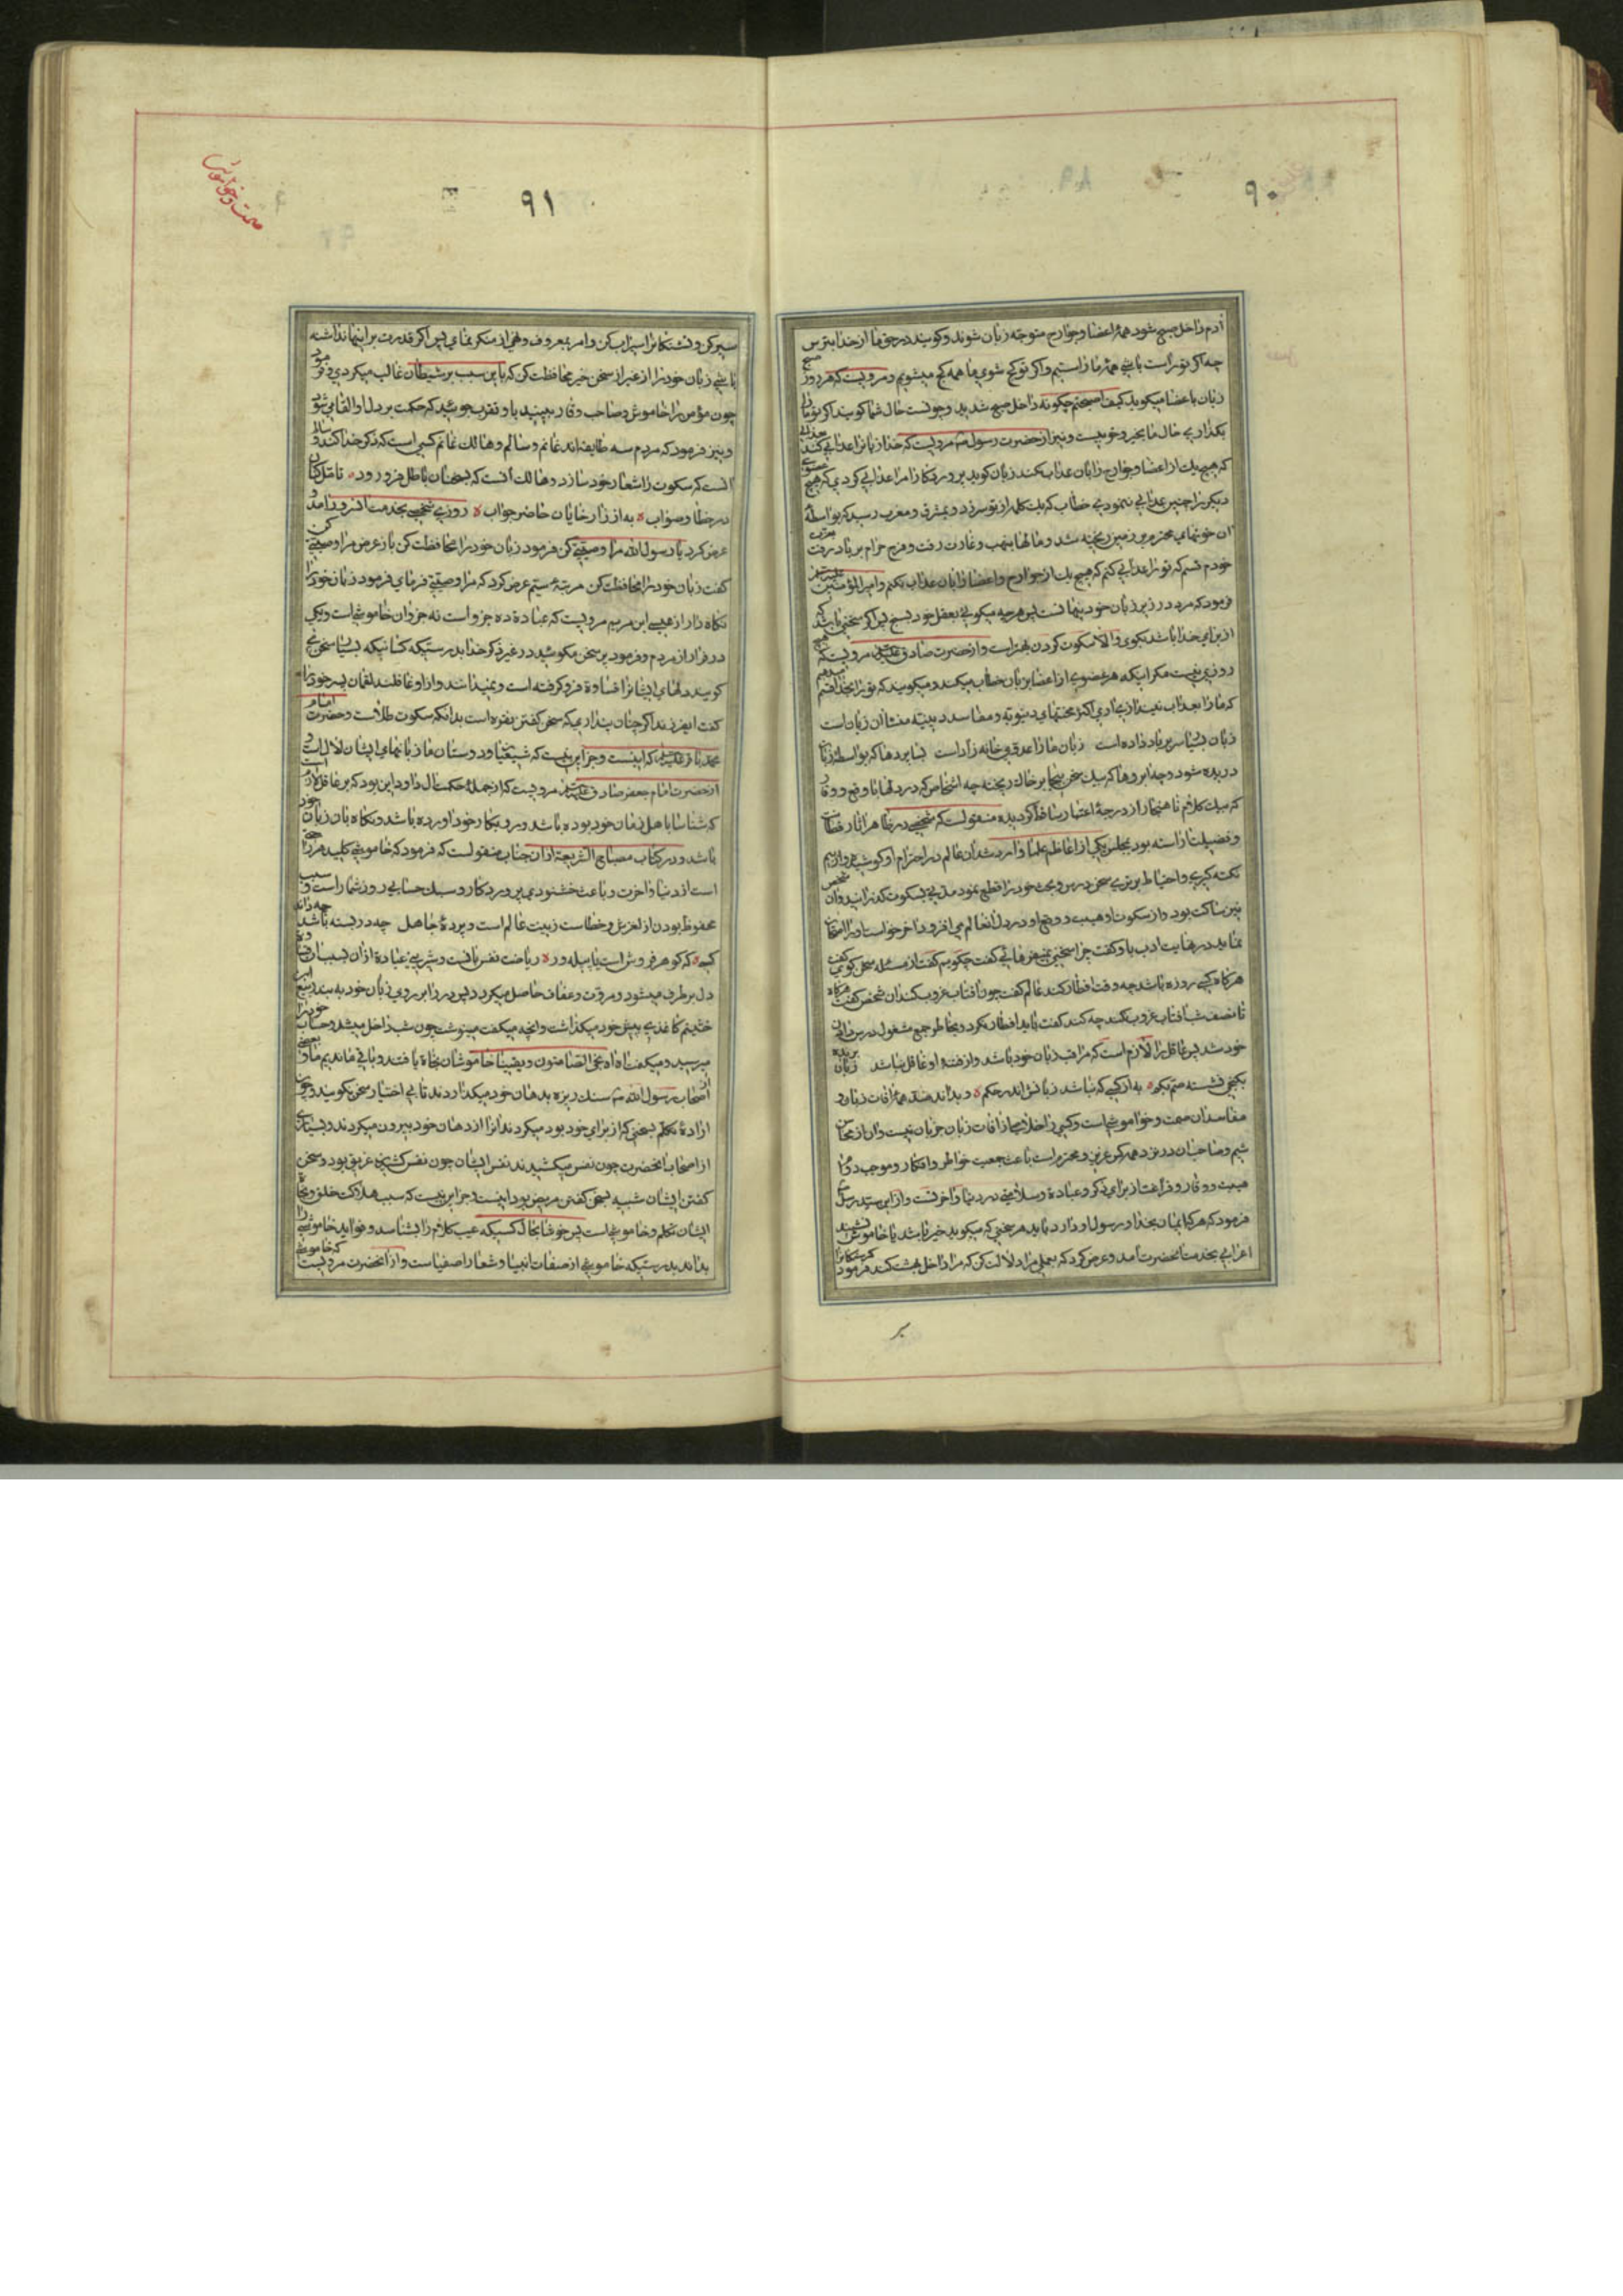 ۹۰
آدم داخل صبح شود همهٔ اعضا و جوارح متوجه زبان شوند و کویند در حق ما از خدا بترس
چه اکر تو راست باشی همهٔ ما راستیم و اکر تو کج شوی ما همه کج میشویم و مرویست که هر روز صبح
زبان باعضا میکوید کیف اصبحتم چکونه داخل صبح شدید و چونست حال شما کویند اکر تو ما را
بکذاری حال ما بخیر و خوبیست و نیز از حضرت رسول ص مرویست که خدا زبانرا عذابی کند
که هیچ یك از اعضا و جوارح را بان عذاب نکند زبان کوید پروردکارا مرا عذابی کردی که هیچ عضوی
دیکر را چنین عذابی ننمودی خطاب که یك کلمه از تو سر زد و بمشرق و مغرب رسید که بواسطهٔ
ان خونهای محترم بر زمین ریخته شد و مالها بنهب و غارت رفت و فرج حرام بر باد رفت بعزت
خودم قسم که تو را عذابی کنم که هیچ یك از جوارح و اعضا را بان عذاب نکنم و امیر المؤمنین
فرمود که مرد در زیر زبان خود پنهانست پس هر چه میکوئی بعقل خود بسنج پس اکر سخنی باشد که
از برای خدا باشد بکوی والا سکوت کردن بهتر است و از حضرت صادق مرویست که هیچ
روزی نیست مکر اینکه هر عضوی از اعضا بزبان خطاب میکند و میکوید که تو را بخدا قسم میدهم
که ما را بعذاب نیندازی اری اکثر محنتهای دنیویه و مفاسد دینیه منشا ان زبان است
زبان بسیار سر بر باد داده است زبان ما را عدوی خانه زاد است بسا پردها که بواسطهٔ زبان
دریده شود و چه ابروها که بیك سخن بیجا بر خاك ریخته چه اشخاص که در دلها با وقع و وقار
که بیك کلام ناهنجار از درجهٔ اعتبار ساقط کردیده منقولست که شخصی در ظاهر اثار فضل
و فضیلت اراسته بود بمجلس یکی از اعاظم علما وارد شد ان عالم در احترام او کوشید و از بیم
نکته کیری و احتیاط برتری سخن درس و بحث خود را قطع نمود مدتی بسکوت کذرانید و ان شخص
نیز ساکت بود و از سکوت او هیبت و وقع او در دل انعالم می افزود اخر خواست او را امتحان
نماید در نهایت ادب باو کفت چرا سخنی نمیفرمائی کفت چکویم کفت از مسئله سخن کوی کفت
هر کاه کسی روزه باشد چه وقت افطار کند عالم کفت چون افتاب غروب کند ان شخص کفت هر کاه
تا نصف شب افتاب غروب نکند چه کند کفت باید افطار نکرد و بخاطر جمع مشغول درس
خود شد پس عاقل را لازم است که مراقب زبان خود باشد و از فتنهٔ او غافل نباشد زبان بریده
بکنجی نشسته صم بکم ه به از کسی که نباشد زبانش اندر حکم ه و بداند ضد همهٔ افات زبان و
مفاسد ان صمت و خواموشیاست و کسی را خلاصی از افات زبان جز بان نیست و ان از محاسن
شیم و صاحبان در نزد همه کس عزیز و محترم است باعث جمعیت خواطر و افکار و موجب دوام
هیبت و وقار و فراغت از برای ذکر و عبادة و سلامتی در دنیا و اخرتست و از این سید رسل
فرمود که هر که ایمان بخدا و رسول او دارد باید هر سخنی که میکوید خیر باشد یا خاموش نشیند
اعرابی بخدمت انحضرت امد و عرض کرد که بعملی مرا دلالت کن که مرا داخل بهشت کند فرمود کرسنکانرا
سیر
۹۱
صمت و خواموشی
سیر کن و تشنکانرا سیراب کن و امر بمعروف و نهی از منکر نمای پس اکر قدرت بر اینها نداشته
باشی زبان خود را از غیر از سخن خیر محافظت کن که باین سبب بر شیطان غالب میکردی و فرمود
چون مؤمن را خاموش و صاحب وقار ببینید باو تقرب جوئید که حکمت بر دل او القا می شود
و نیز فرمود که مردم سه طایفه اند غانم و سالم و هالك غانم کسی است که ذکر خدا کند و سالم
انست که سکوت را شعار خود سازد و هالك انست که بسخنان باطل فرو رود ه تامل کنان
در خطا و صواب ه به از ژاژ خایان حاضر جواب ه روزی شخصی بخدمت انسرور امد و
عرض کرد یا رسول الله مرا وصیتی کن فرمود زبان خود را محافظت کن باز عرض مرا وصیتی کن
کفت زبان خود را محافظت کن مرتبهٔ سیم عرض کرد که مرا وصیتی فرمای فرمود زبان خود را
نکاه دار از عیسی ابن مریم مرویست که عبادة ده جزو است نه جزو ان خاموشی است و یکی
در فرار از مردم و فرمود پر سخن مکوئید در غیر ذکر خدا بدرستیکه کسانیکه بسیار سخن می
کویند دلهای ایشانرا قساوة فرو کرفته است و نمیدانند و از او غافلند لقمان پسر خود را
کفت ایفرزند اکر چنان پنداری که سخن کفتن نقره است بدانکه سکوت طلاست و حضرت امام
محمد باقر کرامیست و جز این نیست که شیعیان و دوستان ما زبانهای ایشان لال است و
از حضرت امام جعفر صادق مرویست که از جملهٔ حکمت ال داود این بود که بر عاقل لازم است
که شناسا باهل زمان خود بوده باشد و رو بکار خود اورده باشد و نکاه بان زبان خود
باشد و در کتاب مصباح الشریعة از ان جناب منقولست که فرمود که خاموشی کلید هر راحتی
است از دنیا و اخرت و باعث خشنودی پروردکار و سبك حسابی روز شمار است و سبب
محفوظ بودن از لغزش و خطاست زینت عالم است و پردهٔ جاهل چه در بسته باشد چه داند
کسی ه که کوهر فروش است یا پیله ور ه ریاضت نفس بانست و شیرینی عبادة از ان قساوة
دل بر طرف میشود و مروت و عفاف حاصل میکردد پس در را بر روی زبان خود ببند ربیع ابن
خثیم کاغذی پیش خود میکذاشت و انچه میکفت مینوشت چون شب داخل میشد و حساب خود را
میرسید و میکفت اه اه نجی الصامتون و یقینا خاموشان نجاة یافتند و باقی ماندیم ما و بعضی
از اصحاب رسول الله ص سنك ریزه بدهان خود میکذاردند تا بی اختیار سخن نکویند و چون
ارادهٔ تکلم بسخنی که از برای خود بود میکردند انرا از دهان خود بیرون میکردند و بسیاری
از اصحاب انحضرت چون نفس میکشیدند نفس ایشان چون نفس کشیدن غریق بود و سخن
کفتن ایشان شبیه بسخن کفتن مریض بود اینست و جز این نیست که سبب هلاکت خلق و نجاة
ایشان تکلم و خاموشی است پس خوشا بحال کسیکه عیب کلام را بشناسد و فواید خاموشی را
بداند بدرستیکه خاموشی از صفات انبیا و شعار اصفیاست و از انحضرت مرویست که خاموشی